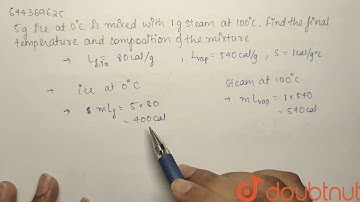 644369625
5g ice at 0°C is mixed with 1g steam at 100°C. Find the final
temperature and composition of the mixture
→ Lf,ice 80cal/g , Lvap = 540cal/g , S = 1cal/g°C
ice at 0°C
steam at 100°C
→ mLf = 5×80
= 400cal
→ mLvap = 1×540
= 540cal
doubtnut